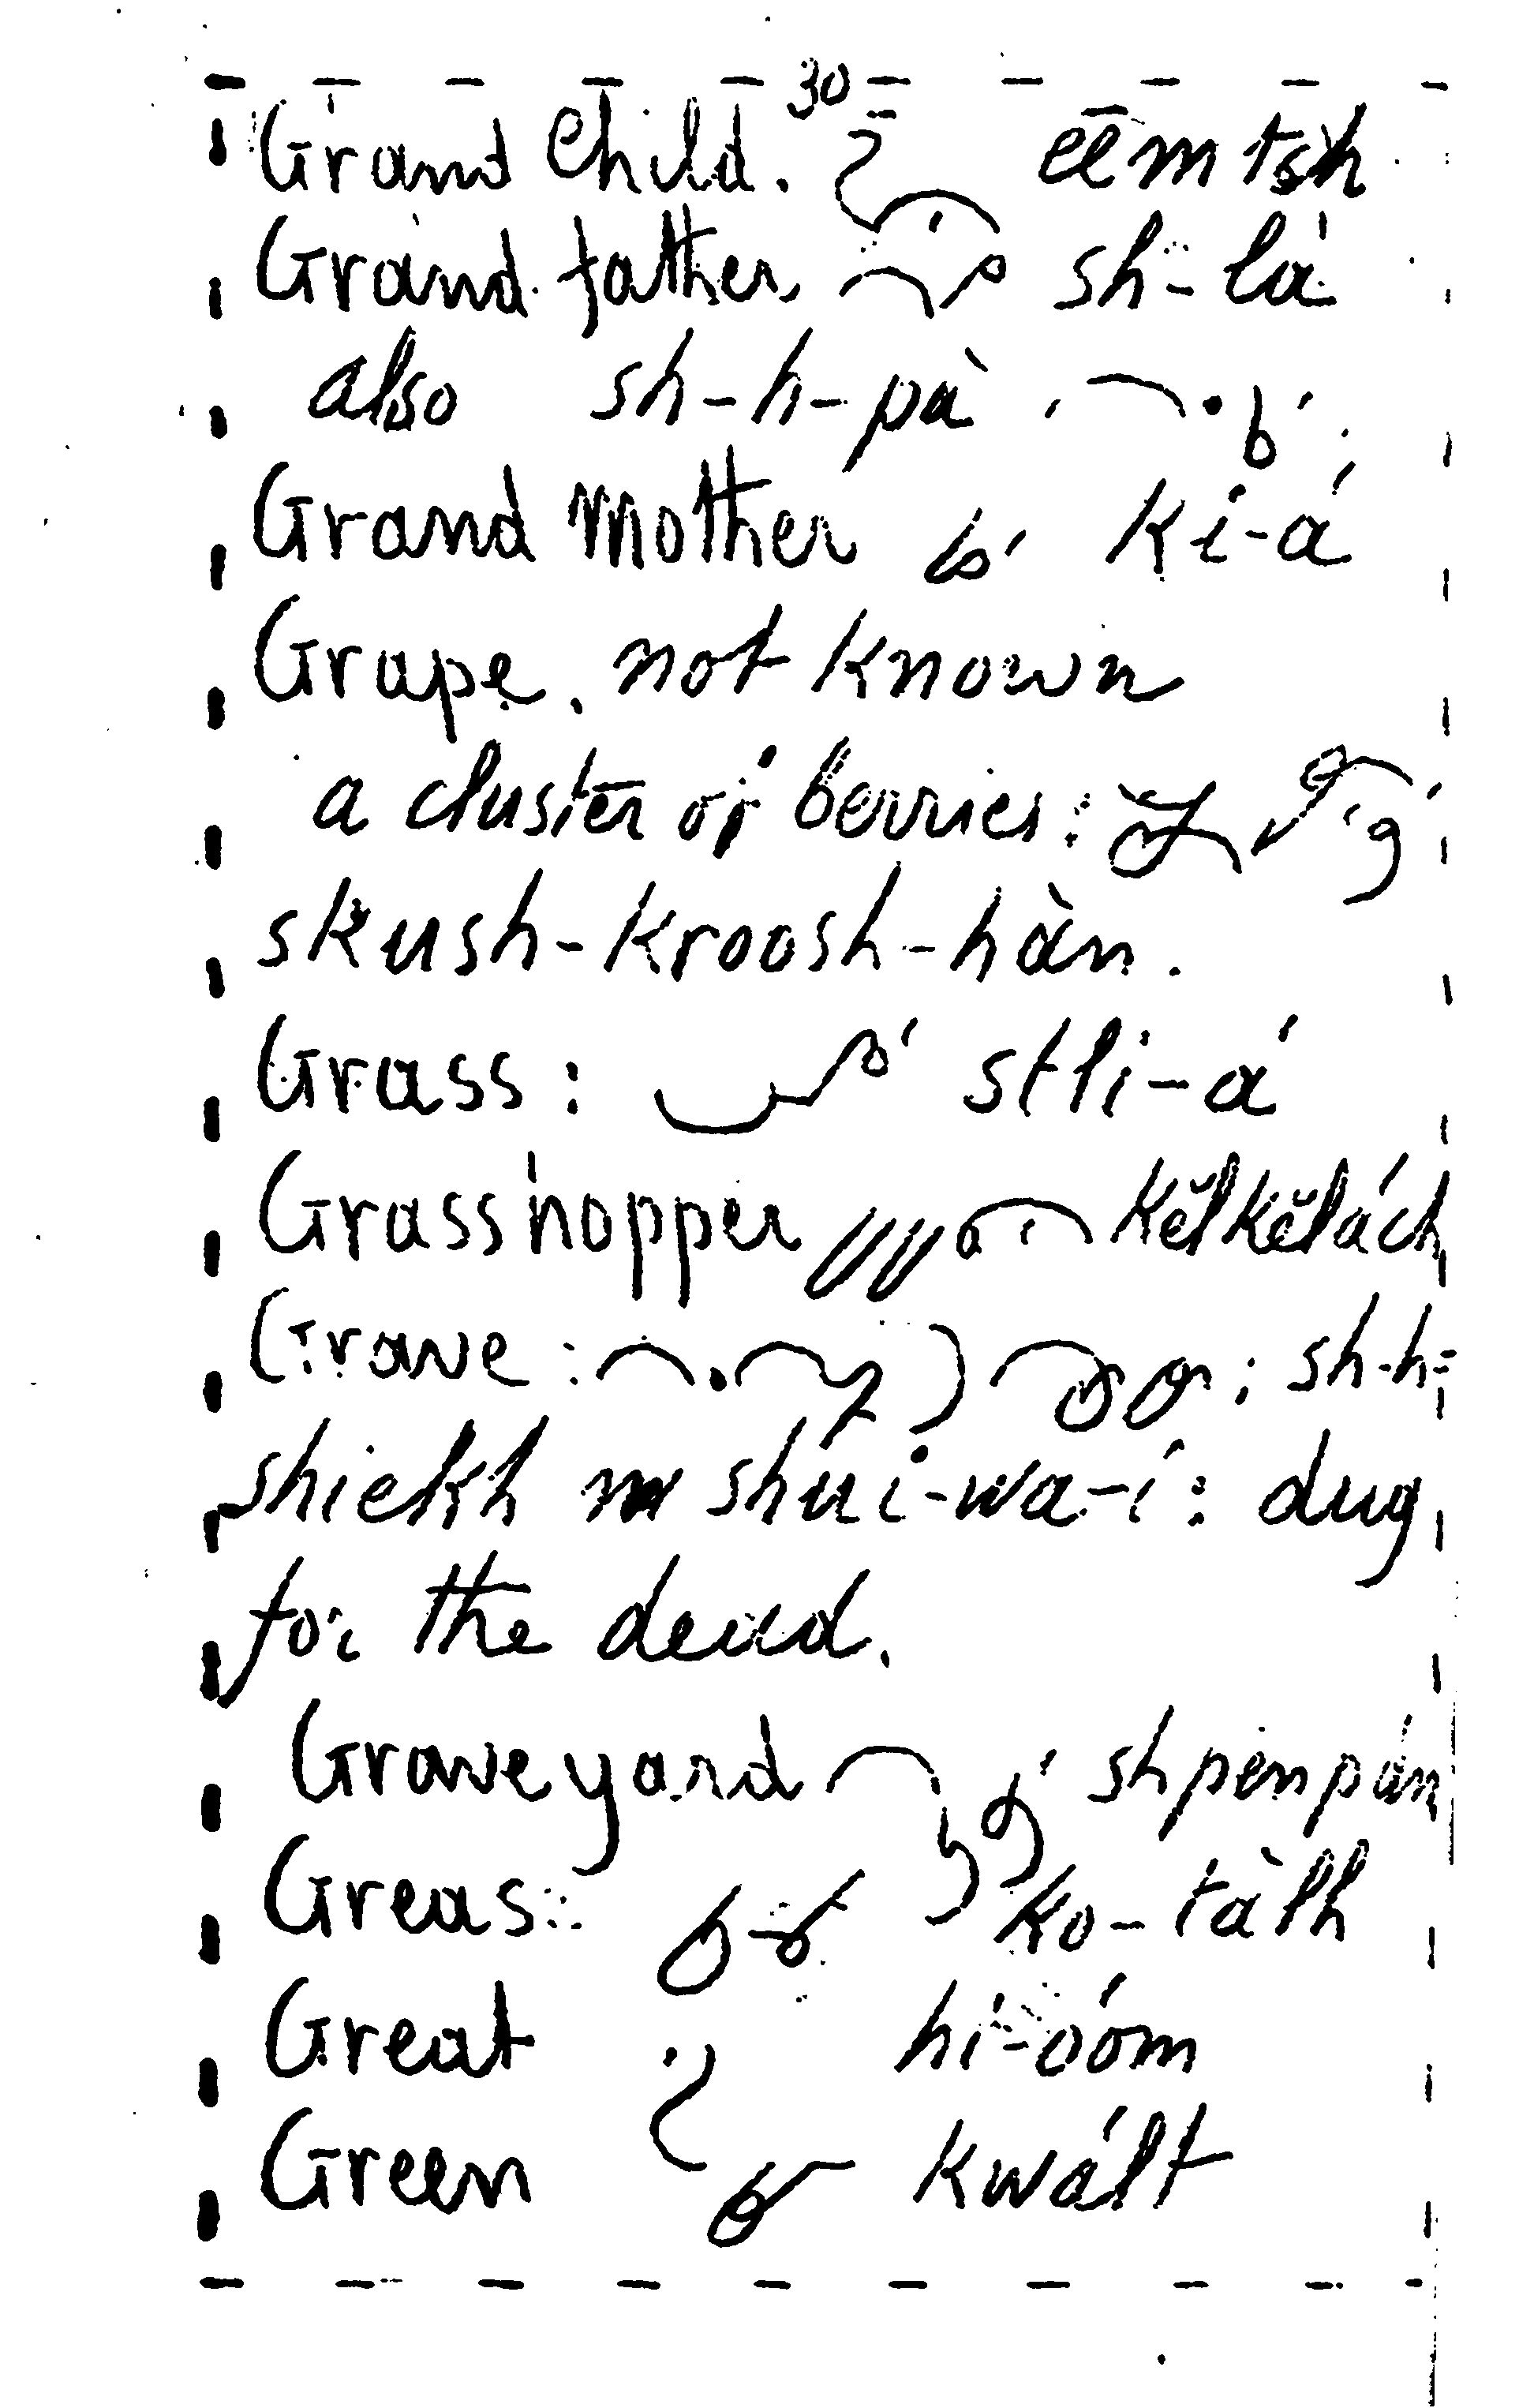 30
Grand Child. ēēmtsh
Grand father, sh-là
also sh-h-pà
Grand Mother ki-á
Grape, not known
a cluster of berries:
skush-kroosh-hàn.
Grass: stli-á
Grasshopper kĕlkĕlách
Grave: : sh-h-
shiekh m shúi-wa-í: dug
for the dead.
Graveyard shpenpán
Greas: ko-tàlh
Great hi-óóm
Green kwált